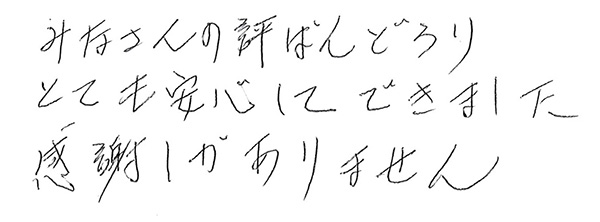 みなさんの評ばんどうり
とても安心してできました
感謝しかありません